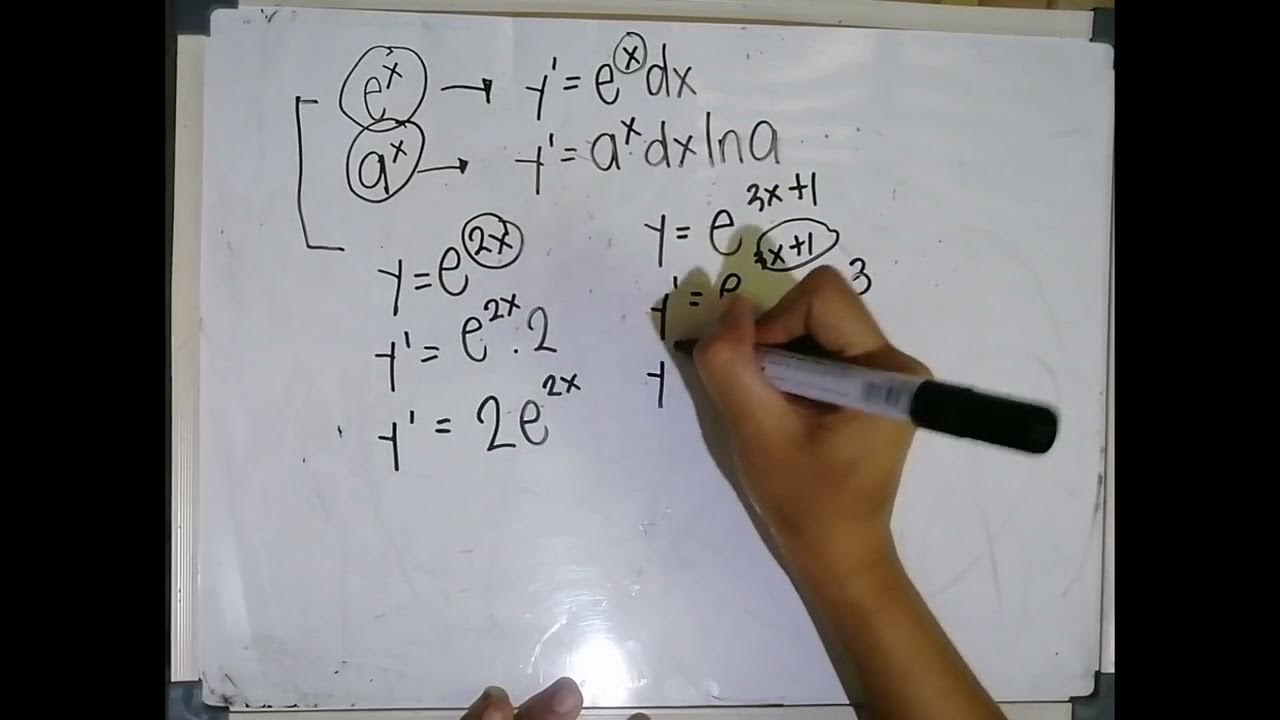 eˣ → y' = eˣdx
aˣ → y' = aˣdx ln a
y = e²ˣ
y' = e²ˣ · 2
y' = 2e²ˣ
y = e³ˣ⁺¹
y' = e³ˣ⁺¹ 3
y